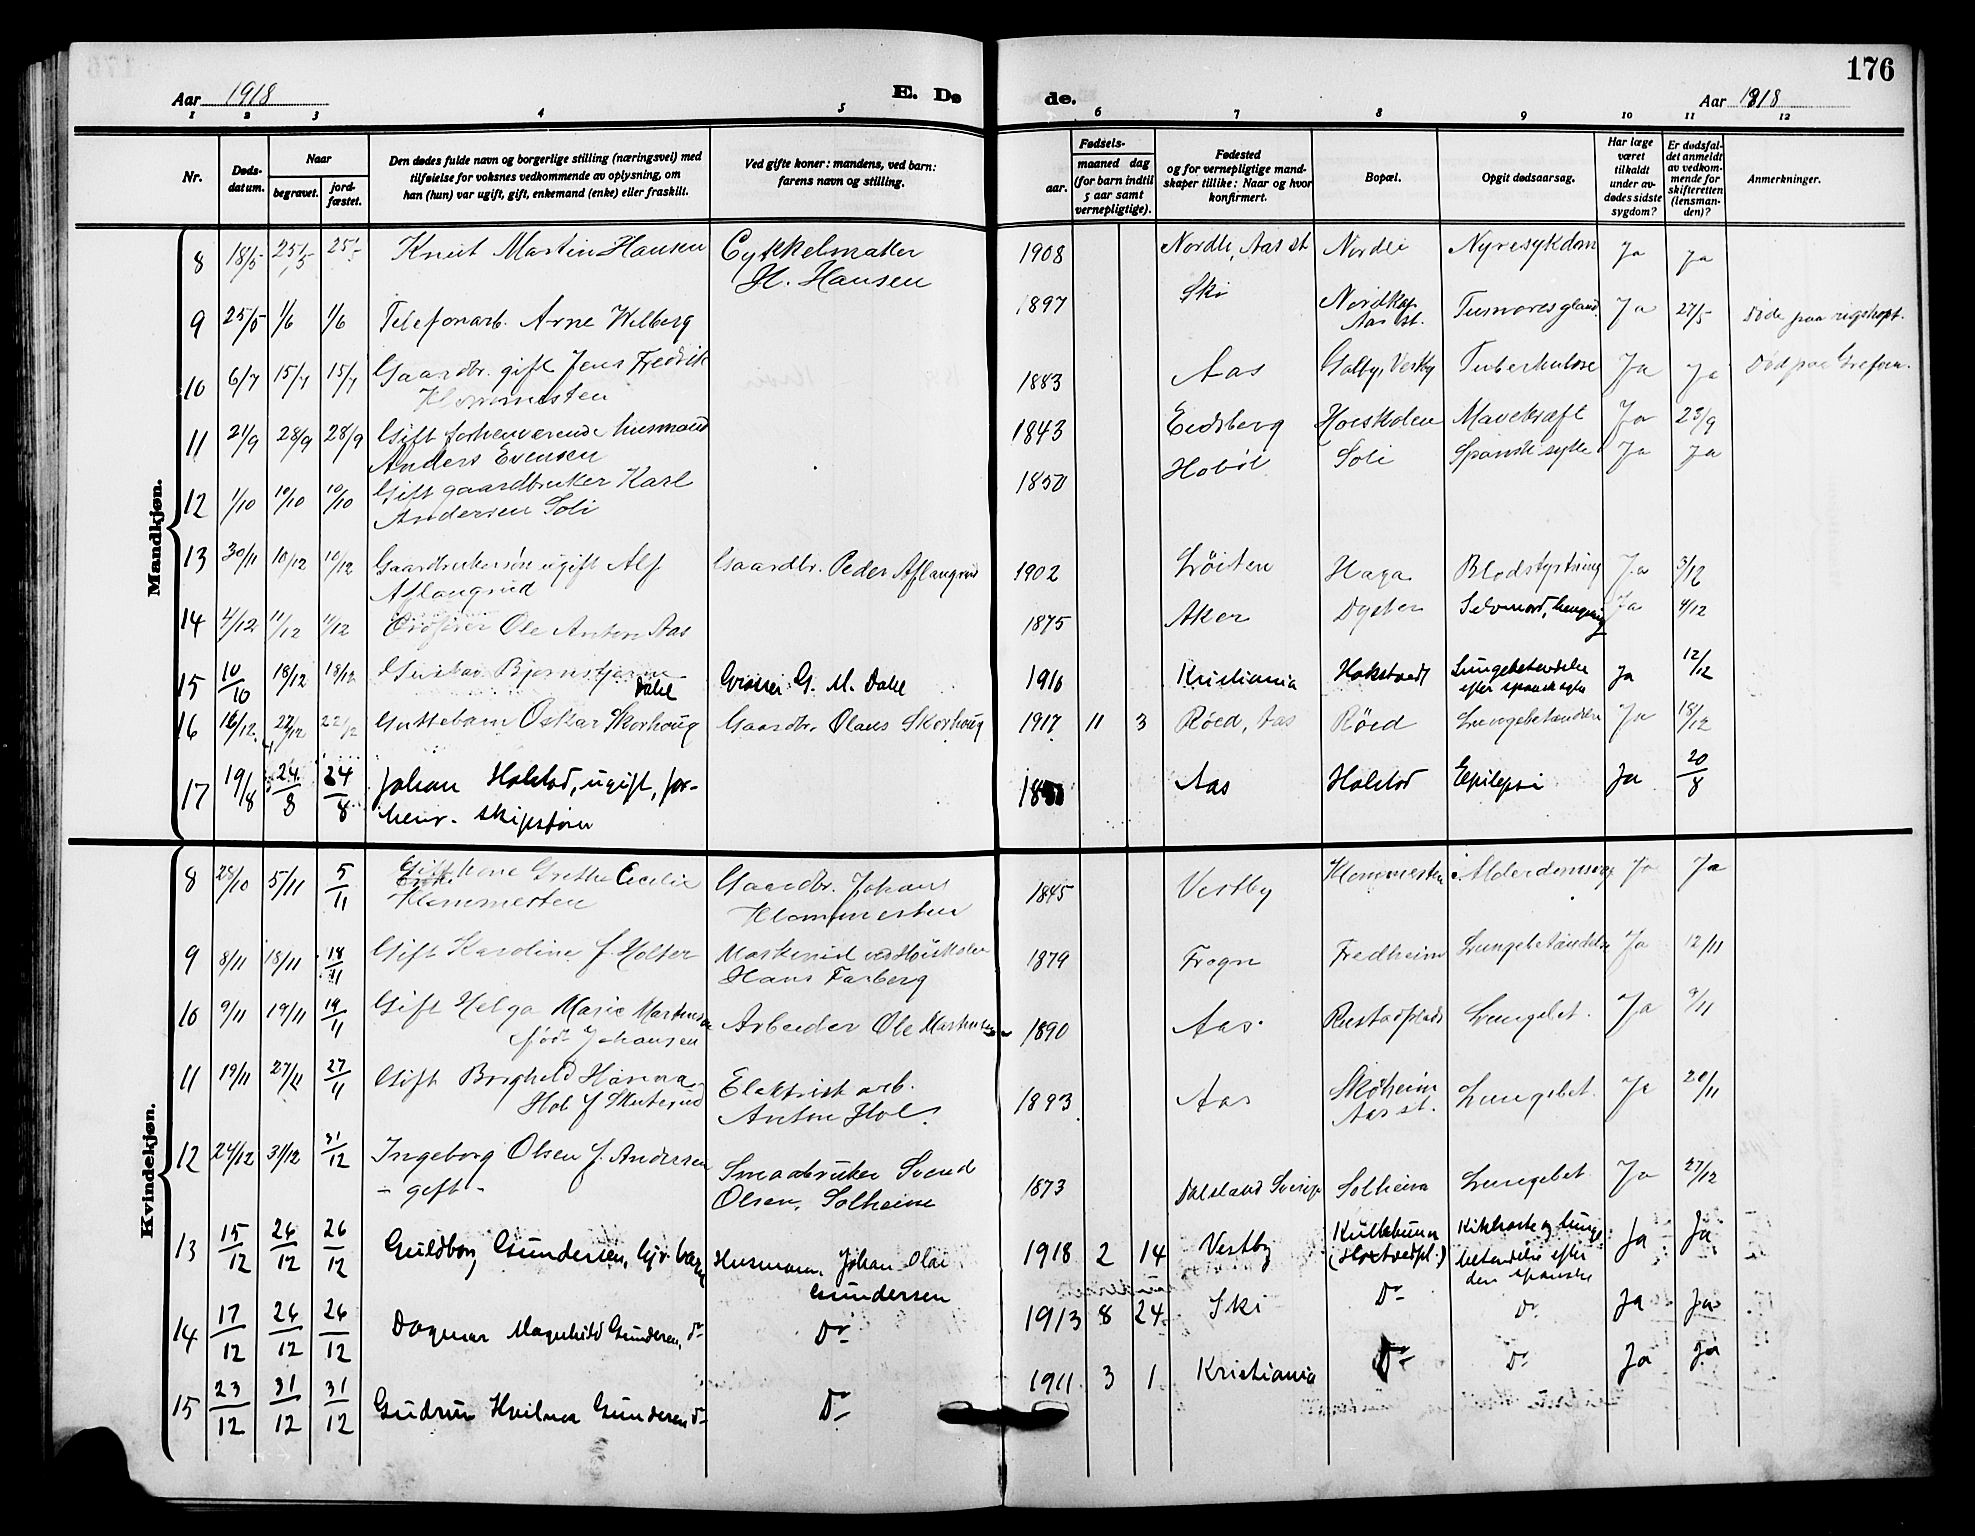 176
Aar 1918 E. Dø
de. Aar 1918
1 2 3 4 5 6 7 8 9 10 11 12
Nr.
Døds-
datum.
Naar
begravet.
jord-
fæstet.
Den dødes fulde navn og borgerlige stilling (næringsvei) med
tilføielse for voksnes vedkommende av oplysning, om
han (hun) var ugift, gift, enkemand (enke) eller fraskilt.
Ved gifte koner: mandens, ved barn:
farens navn og stilling.
Fødsels-
aar.
maaned dag
(for barn indtil
5 aar samt
vernepligtige).
Fødested
og for vernepligtige mand-
skaper tillike: Naar og hvor
konfirmert.
Bopæl.
Opgit dødsaarsag.
Har læge
været
tilkaldt
under av-
dødes sidste
sygdom?
Er dødsfal-
det anmeldt
av vedkom-
mende for
skifteretten
(lensman-
den)?
Anmerkninger.
Mandkjøn.
8 18/5 25/5 25/5 Knut Martin Hansen Cykkelmaker
H. Hansen
1908 Nordli, Aas st. Nordli Nyresykdom Ja Ja
9 25/5 1/6 1/6 Telefonarb. Arne Wilberg
1897 Ski Nordkap
Aas st. Ja 27/5 Døde paa rigshosp.
10 6/7 15/7 15/7 Gaardbr. gift Jens Fredrik
Klommesten
1883 Aas Tuberkulose Ja Ja Død paa Grefsen.
11 21/9 28/9 28/9 Gift forhenværende husmand
Anders Evensen
1843 Eidsberg Høiskolen Mavekræft Ja 23/9
12 1/10 10/10 10/10 Gift gaardbruker Karl
Andersen Soli
1850 Hobøl Soli Spansk syke Ja Ja
13 30/11 10/12 10/12 Gaardbrukersøn ugift Alf
Aflangrud Gaardbr. Peder Aflangrud
1902 Løiten Haga Blodstyrtning Ja 3/12
14 4/12 11/12 11/12 Ole Anton Aas
1875 Aker Dyster Selvmord, hengning Ja 4/12
15 10/10 18/12 18/12 Gustav Bjørnstjerne
Dahl Grosser G. M. Dahl
1916 Kristiania Hokstvedt Lungebetændelse
efter spansk syke Ja 12/12
16 16/12 22/12 22/12 Guttebarn Oskar Skorhoug Gaardbr. Olaus Skorhoug
1917 11 3 Røed, Aas Røed Lungebetændelse Ja 18/12
17 19/8 24/8 24/8 Johan Holstad, ugift, for-
henv. skipsfører
Aas Holstad Epilepsi Ja 20/8
Kvindekjøn.
8 28/10 5/11 5/11 Gift kone Grethe Cecilie
Klommesten Gaardbr. Johans
Klommesten
1845 Vestby Klommesten Alderdomssvag Ja Ja
9 8/11 18/11 18/11 Gift Karoline f. Holter Maskinist ved Høiskolen
Hans Farberg
1879 Frogn Fredheim Lungebetændelse Ja 12/11
10 9/11 19/11 19/11 Gift Helga Marie Martinsen
fød. Johansen Arbeider Ole Martinsen
1890 Aas. Rustadplads Lungebet. Ja 9/11
11 19/11 27/11 27/11 Gift Borghild Hanna
Hol f. Skuterud Elektrisk arb.
Anton Hol.
1893 Aas Skoheim
Aas st. Lungebet. Ja 20/11
12 24/12 31/12 31/12 Ingeborg Olsen f. Andersen
- gift - Smaabruker Svend
Olsen, Solheim
1873 Dalsland Sverige Solheim Lungebet. Ja 27/12
13 15/12 26/12 26/12 Guldborg Gundersen, hjv. barn Husmann Johan Olai
Gundersen
1918 2 14 Vestby Kullebunn
(Hoxtvedtpl.) Kikhoste og lunge-
betændelse efter
den spanske Ja Ja
14 17/12 26/12 26/12 Dagmar Magnhild Gundersen, do Do
1913 8 24 Ski Do Do Ja Ja
15 23/12 31/12 31/12 Gudrun Gundersen do Do
1911 3 1 Kristiania Do Do Ja Ja